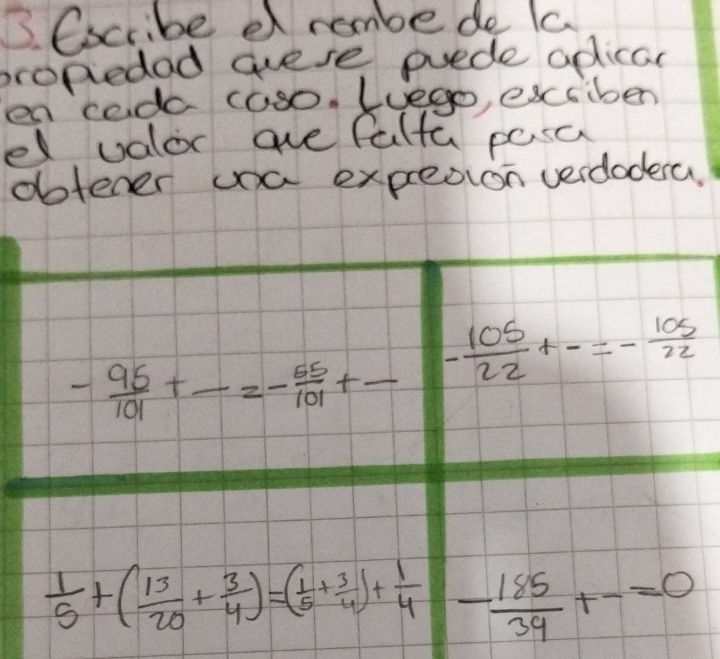 3. Escribe el nombe de la
propiedad que se puede aplicar
en cada caso. Luego, escriben
el valor que falta para
obtener una expresión verdadera.
- 95/101 + — = - 55/101 + —
- 105/22 + - = - 105/22
1/5 + (13/20 + 3/4) = (1/5 + 3/4) + 1/4
- 185/39 + - = 0